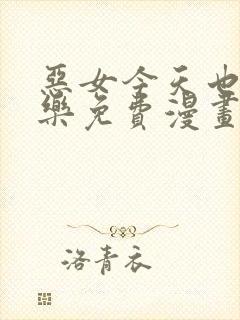 惡女今天也
樂免費漫畫
洛青衣